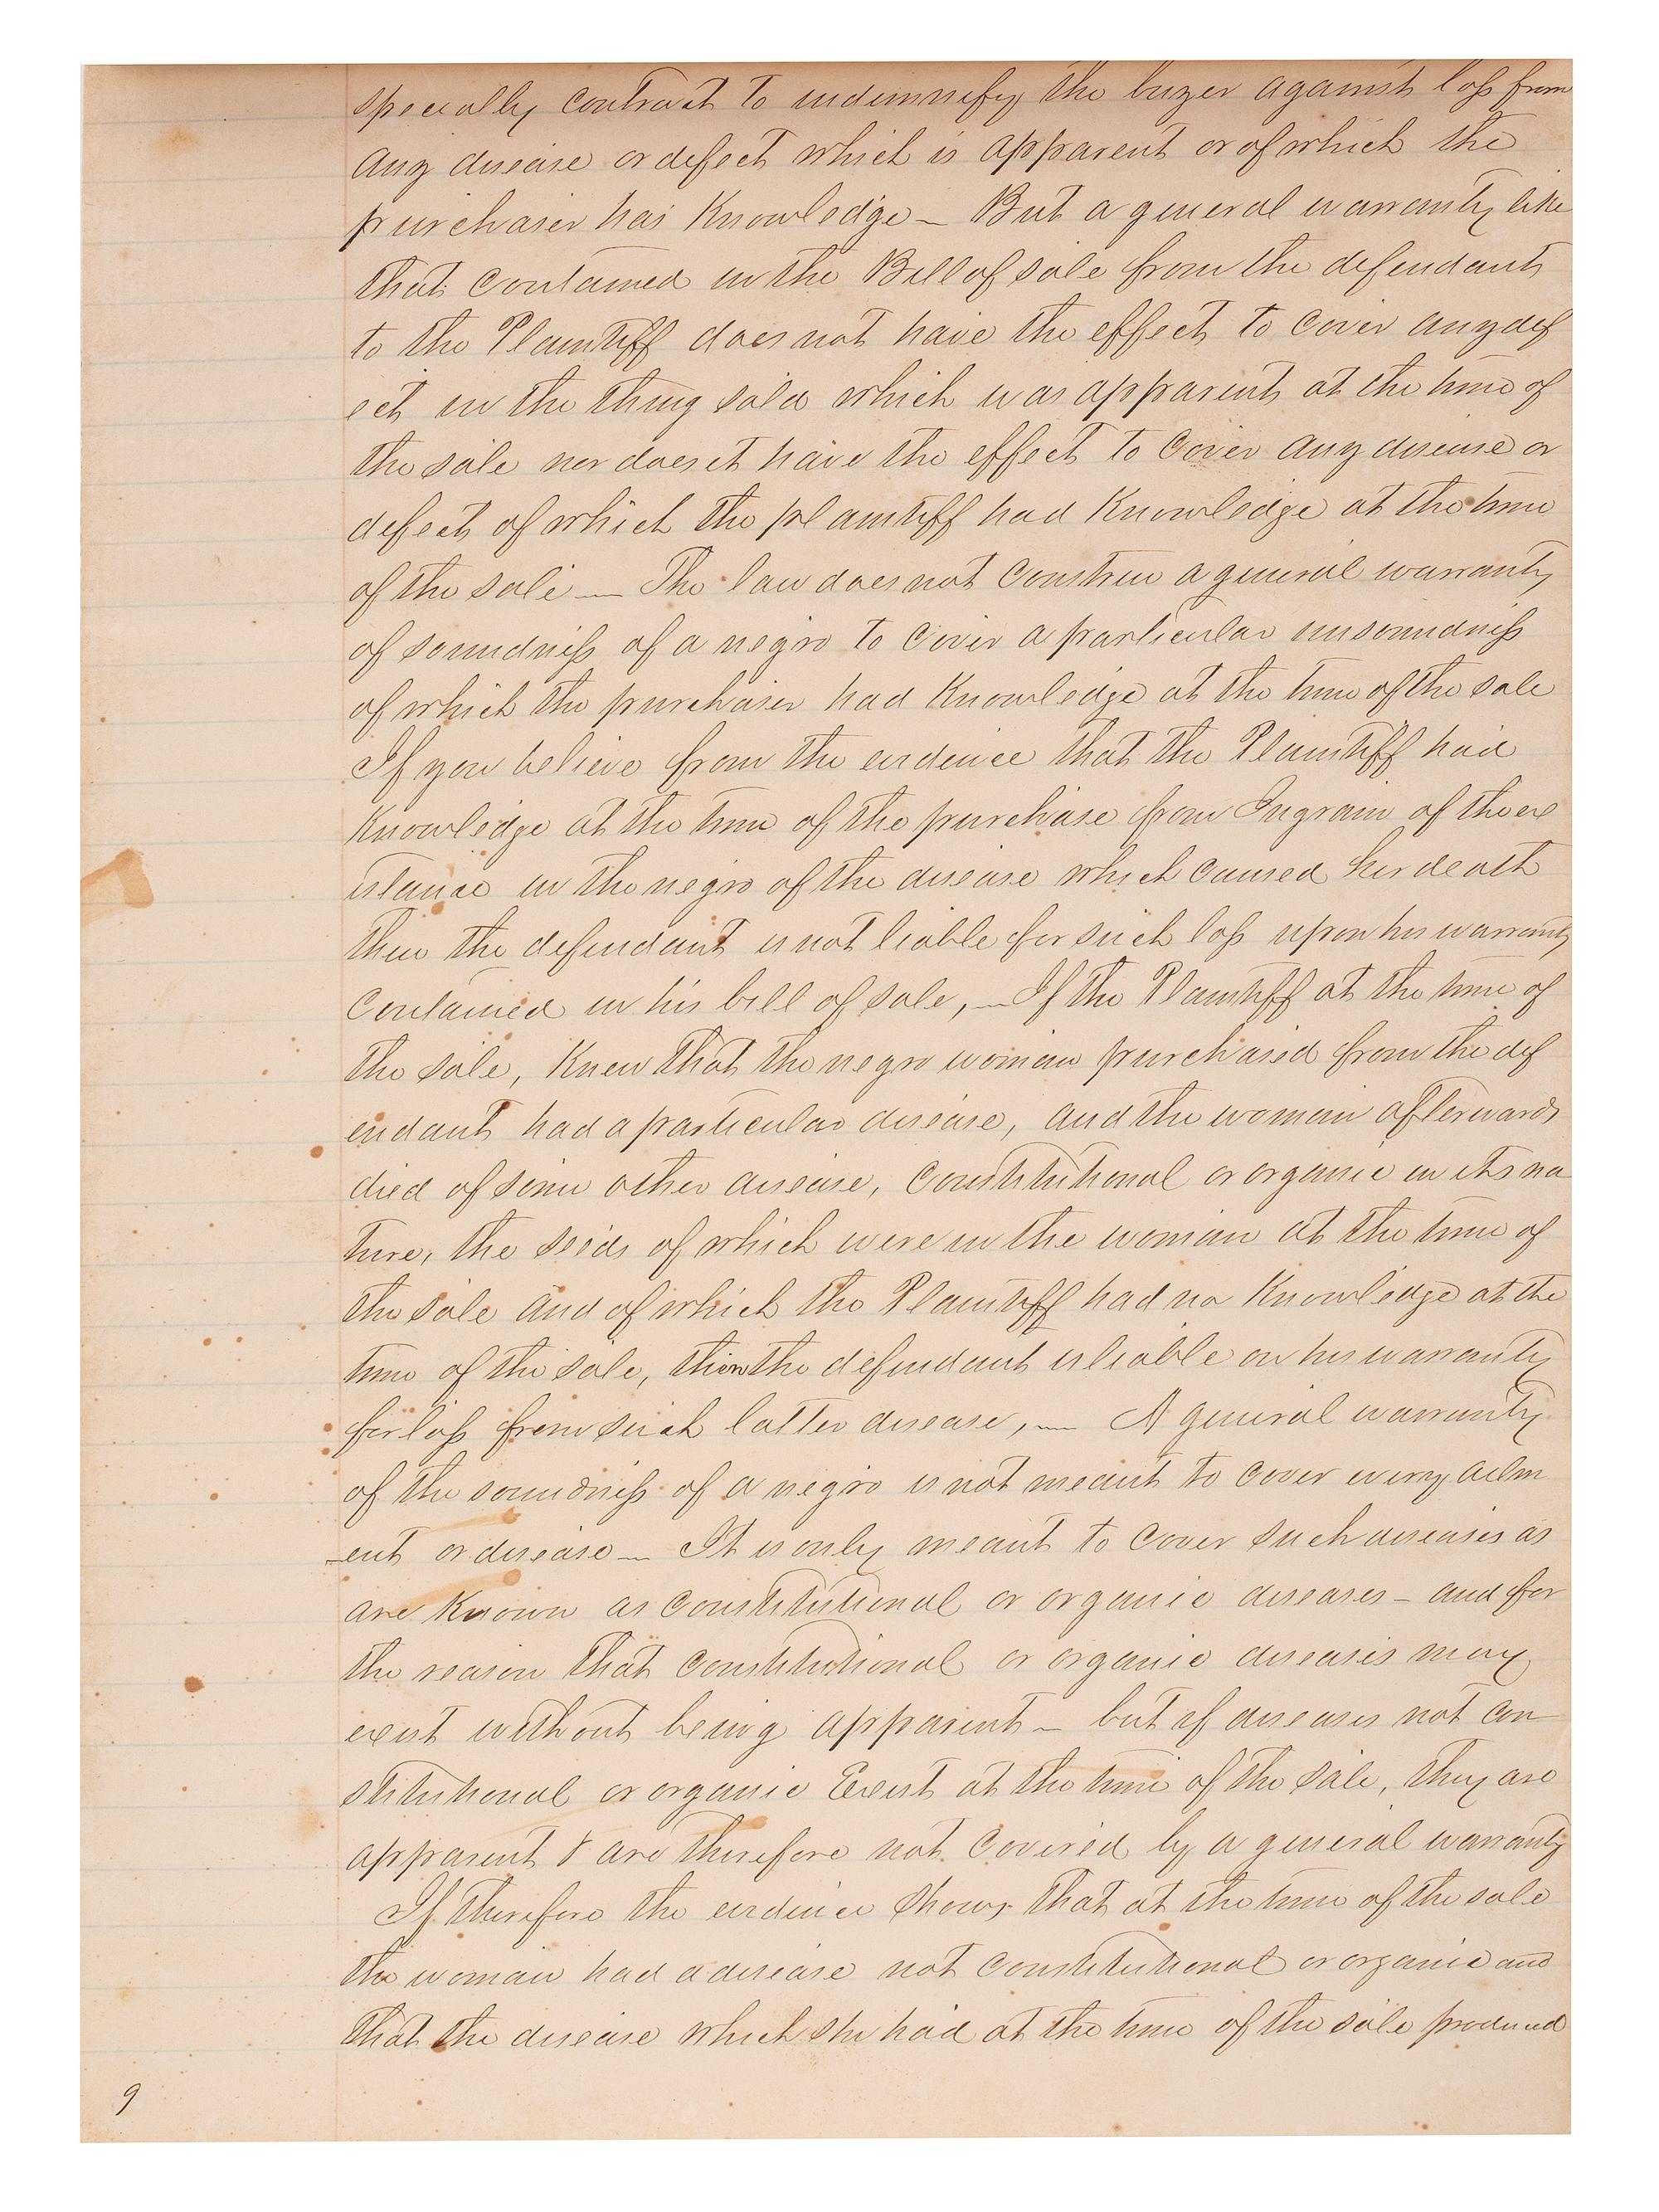 specially contract to indemnify the buyer against loss from
any disease or defect which is apparent or of which the
purchaser has Knowledge — But a general warranty like
that contained in the Bill of sale from the defendant
to the Plaintiff does not have the effect to cover any def
ect in the thing sold which was apparent at the time of
the sale nor does it have the effect to cover any disease or
defect of which the plaintiff had Knowledge at the time
of the sale — The law does not construe a general warranty
of soundness of a negro to cover a particular unsoundness
of which the purchaser had Knowledge at the time of the sale
If you believe from the evidence that the Plaintiff had
Knowledge at the time of the purchase from Ingram of the ex
istance in the negro of the disease which caused her death
then the defendant is not liable for such loss upon his warranty
contained in his bill of sale, — If the Plaintiff at the time of
the sale, Knew that the negro woman purchased from the def
endant had a particular disease, and the woman afterwards
died of some other disease, constitutional or organic in its na
ture, the seeds of which were in the woman at the time of
the sale and of which the Plaintiff had no Knowledge at the
time of the sale, then the defendant is liable on his warranty
for loss from such latter disease, — A general warranty
of the soundness of a negro is not meant to cover every ailm
-ent or disease — It is only meant to cover such diseases as
are Known as constitutional or organic diseases — and for
the reason that constitutional or organic diseases may
exist without being apparent — but if diseases not con
stitutional or organic Exist at the time of the sale, they are
apparent & are therefore not covered by a general warranty
If therefore the evidence shows that at the time of the sale
the woman had a disease not constitutional or organic and
that the disease which she had at the time of the sale produced
9